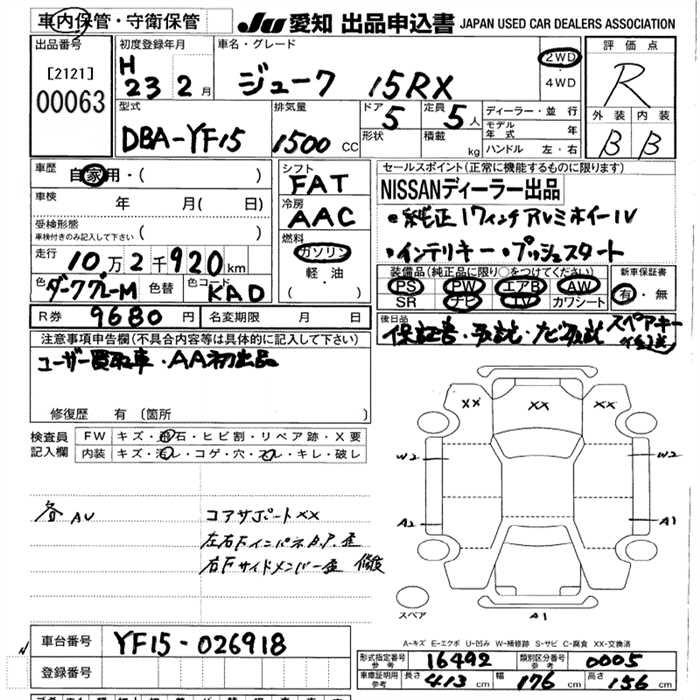 車内保管・守衛保管 JU 愛知 出品申込書 JAPAN USED CAR DEALERS ASSOCIATION
出品番号 初度登録年月 車名・グレード 評価点
[2121] 00063 H 23 2月 ジューク 15RX 2WD 4WD R
型式 排気量 ドア 定員 ディーラー・並行 外装 内装
DBA-YF15 1500 CC 5 5人 モデル年式 B B
形状 積載 kg ハンドル 左・右
車歴 自家用・( ) シフト FAT セールスポイント(正常に機能するものに限ります)
車検 年 月( 日) 冷房 AAC NISSANディーラー出品
受検形態 車検付きのみ記入して下さい ( ) 燃料 ガソリン 軽・油 ( ) ・純正17インチアルミホイール
走行 10万2千920km ・インテリキー・プッシュスタート
色 ダークグレーM 色替 色コード KAD 装備品(純正品に限り○をつけてください) 新車保証書
PS PW エアB AW 有・無
SR ナビ TV カワシート
R券 9680円 名変期限 月 日 後日品 保証書・取説・ナビ取説 スペアキー
注意事項申告欄(不具合内容等は具体的に記入して下さい)
ユーザー買取車・AA初出品
修復歴 有 (箇所 )
検査員記入欄 FW キズ・飛石・ヒビ割・リペア跡・X要
内装 キズ・汚レ・コゲ・穴・スレ・キレ・破レ
XX XX XX
W2 W2
各 AU コアサポートXX
A2 A1
左右FインパネA.P.歪
右Fサイドメンバー歪 修復
スペア A1
A-キズ E-エクボ U-凹み W-補修跡 S-サビ C-腐食 XX-交換済
車台番号 YF15-026918 形式指定番号 参考 16492 類別区分番号 参考 0005
登録番号 車庫証明用 参考 長さ 413 cm 幅 176 cm 高さ 156 cm